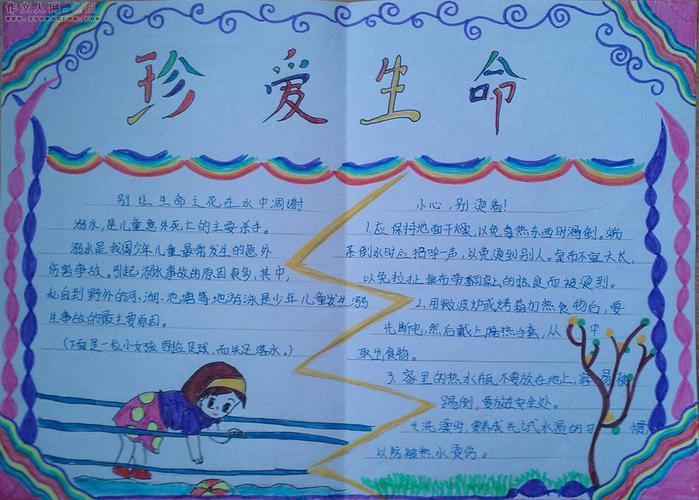 作文人网
www.zuowenren.com
珍爱生命
别让生命之花在水中凋谢
溺水,是儿童意外死亡的主要杀手。
溺水是我国少年儿童最常发生的意外
伤害事故。引起溺水事故的原因很多,其中,
私自到野外的河、湖、池塘等地游泳是少年儿童发生溺
生事故的最主要原因。
(下面是一位小女孩因捡足球,而失足落水。)
小心,别烫着!
1.应保持地面干燥,以免导热东西时滑倒。端
茶倒水时应招呼一声,以免烫到别人。桌布不宜太长,
以免拉扯桌布带翻桌上的热食而被烫到。
2.用微波炉或烤箱加热食物后,要
先断电,然后戴上隔热手套,从中
取出食物。
3.家里的热水瓶不要放在地上,容易被
踢倒,要放在安全处。
洗澡时,要养成先试水温的习惯
以防被热水烫伤。